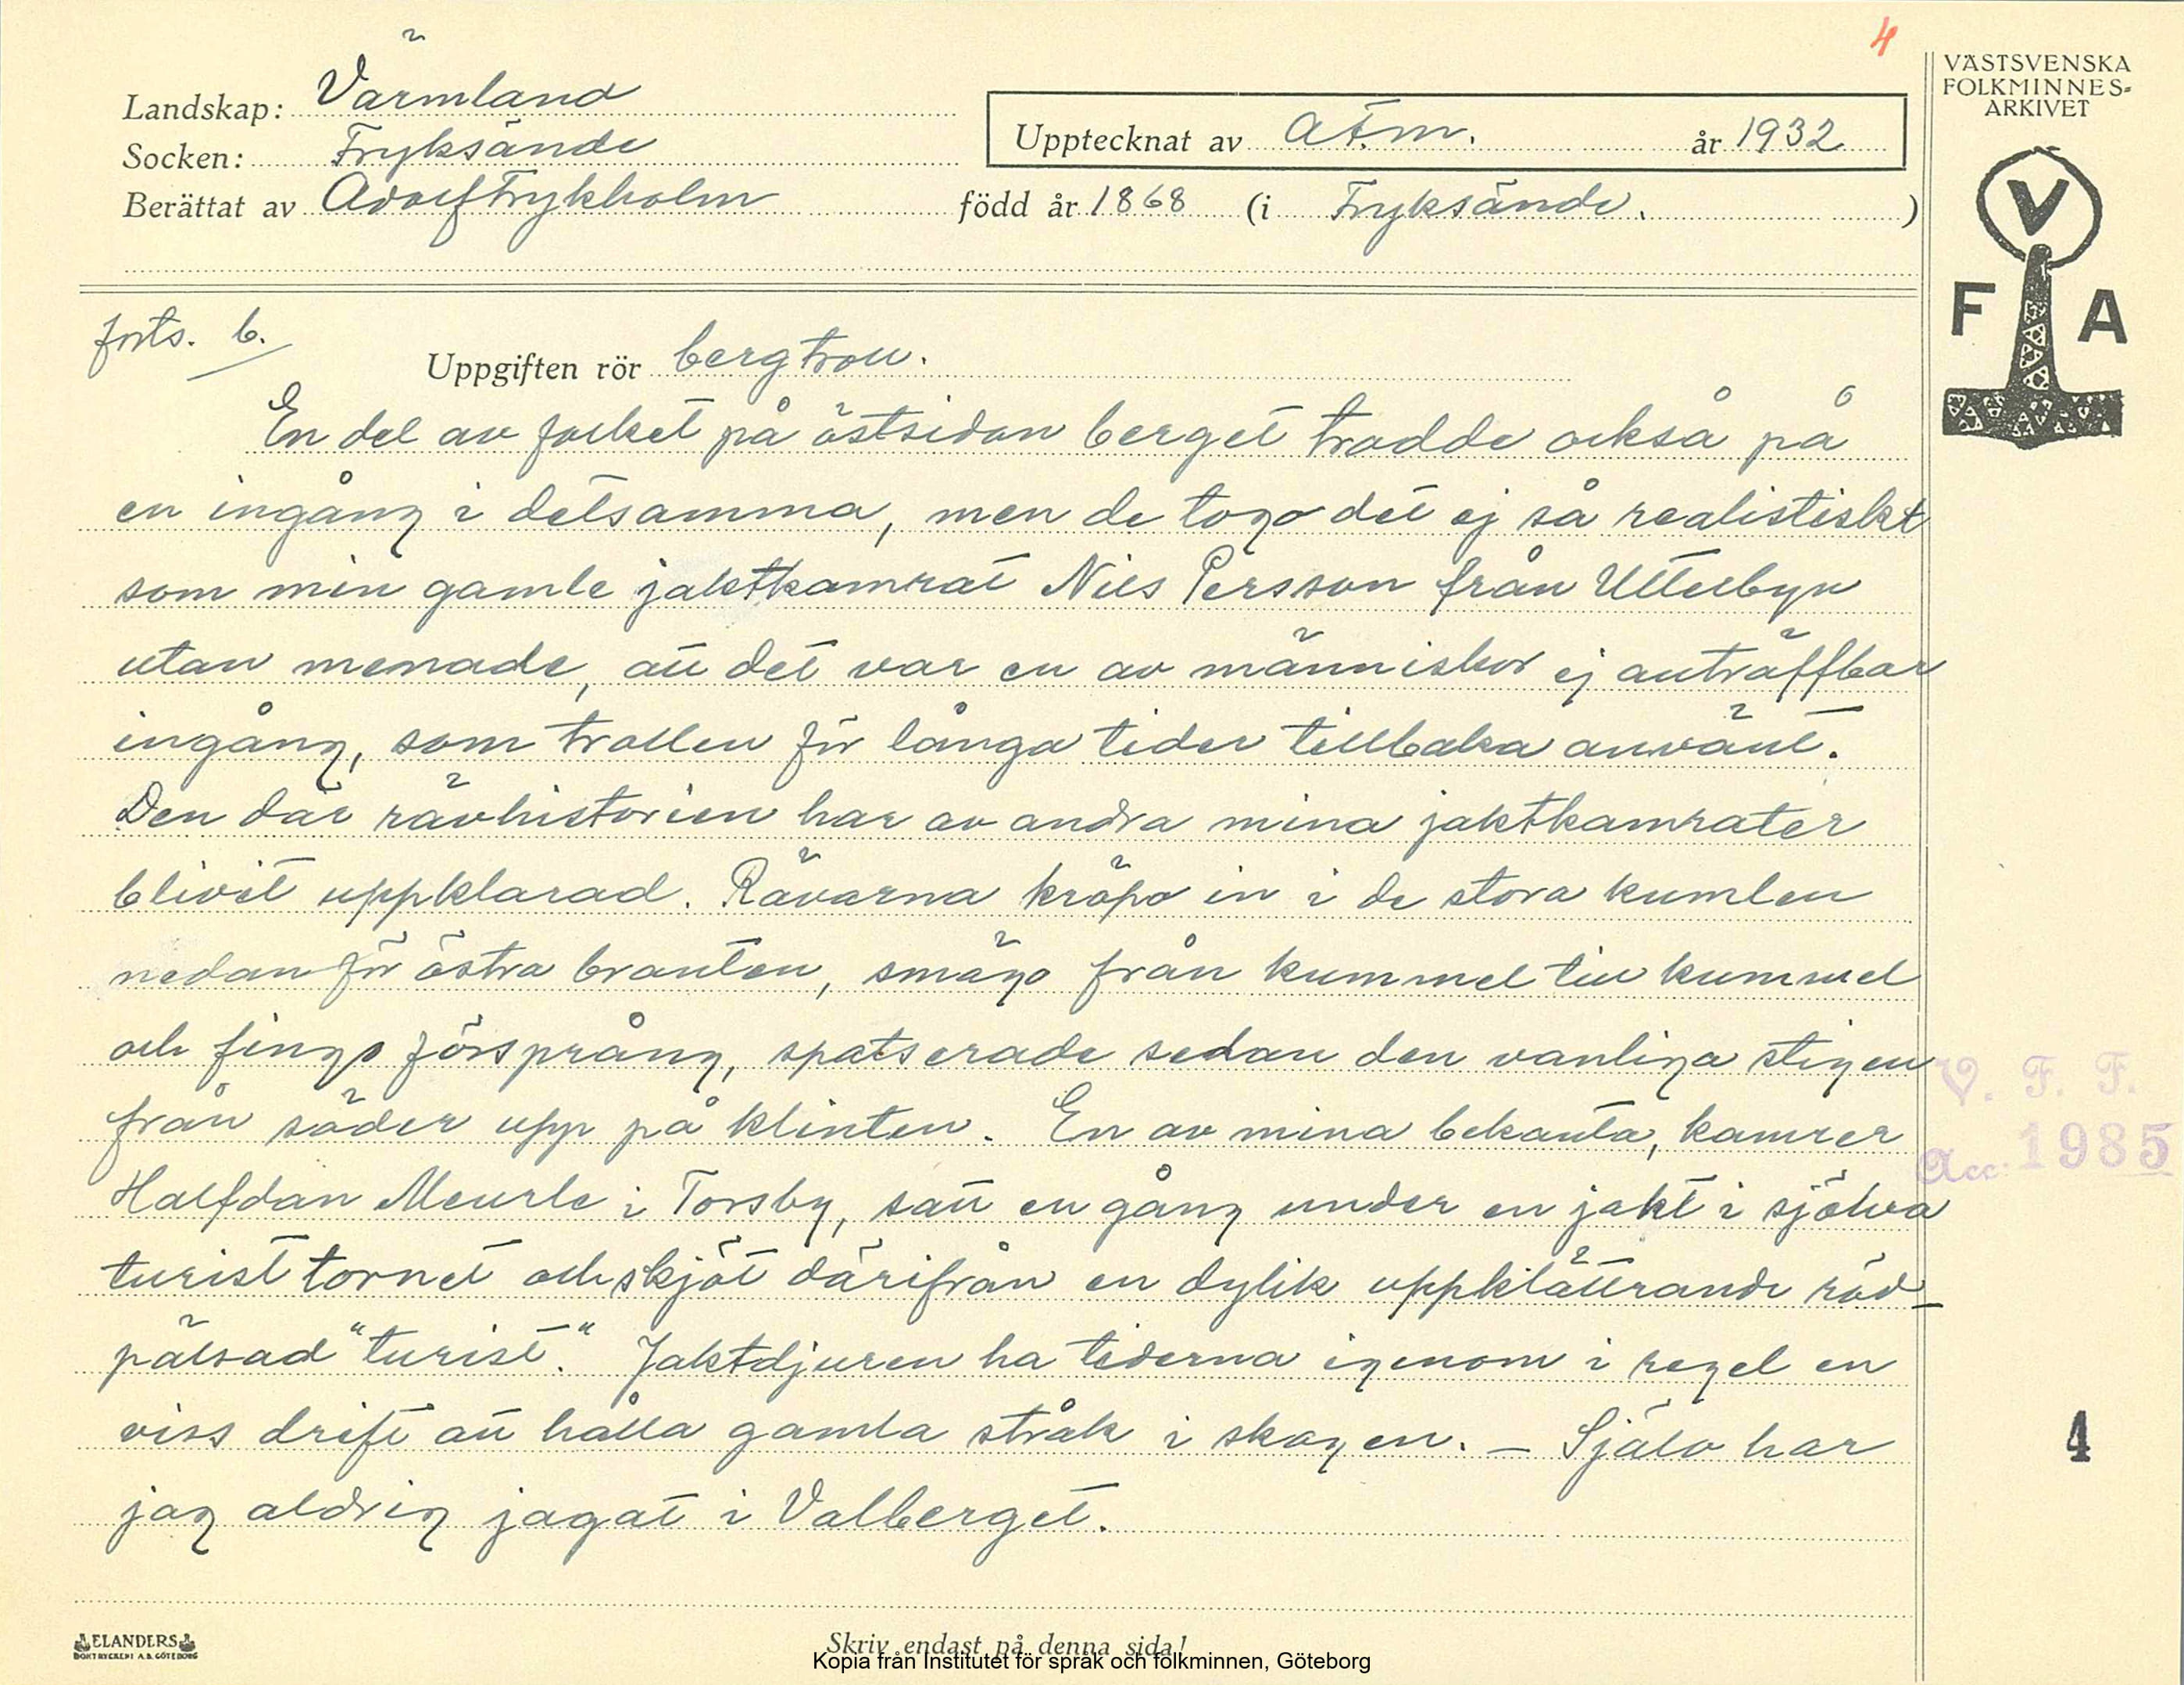 4
VÄSTSVENSKA
FOLKMINNES-
ARKIVET
Landskap: Värmland
Socken: Fryksände
Upptecknat av A.F.m. år 1932
Berättat av Adolf Frykholm född år 1868 (i Fryksände.)
V
F A
forts. 6.
Uppgiften rör bergtroll.
En del av folket på östsidan berget trodde också på
en ingång i detsamma, men de togo det ej så realistiskt
som min gamle jaktkamrat Nils Persson från Utterbyn
utan menade, att det var en av människor ej anträffbar
ingång, som trollen för långa tider tillbaka använt.
Den där rävhistorien har av andra mina jaktkamrater
blivit uppklarad. Rävarna kröpo in i de stora kumlen
nedanför östra branten, smögo från kummel till kummel
och fingo försprång, spatserade sedan den vanliga stigen
från söder upp på klinten. En av mina bekanta, kamrer
Halfdan Meurle i Torsby, satt en gång under en jakt i själva
turisttornet och skjöt därifrån en dylik uppklättrande röd-
pälsad "turist". Jaktdjuren ha tiderna igenom i regel en
viss drift att hålla gamla stråk i skogen. – Själv har
jag aldrig jagat i Valberget.
V. F. F.
Acc: 1985
4
ELANDERS
BOKTRYCKERI A.B. GÖTEBORG
Skriv endast på denna sida!
Kopia från Institutet för språk och folkminnen, Göteborg